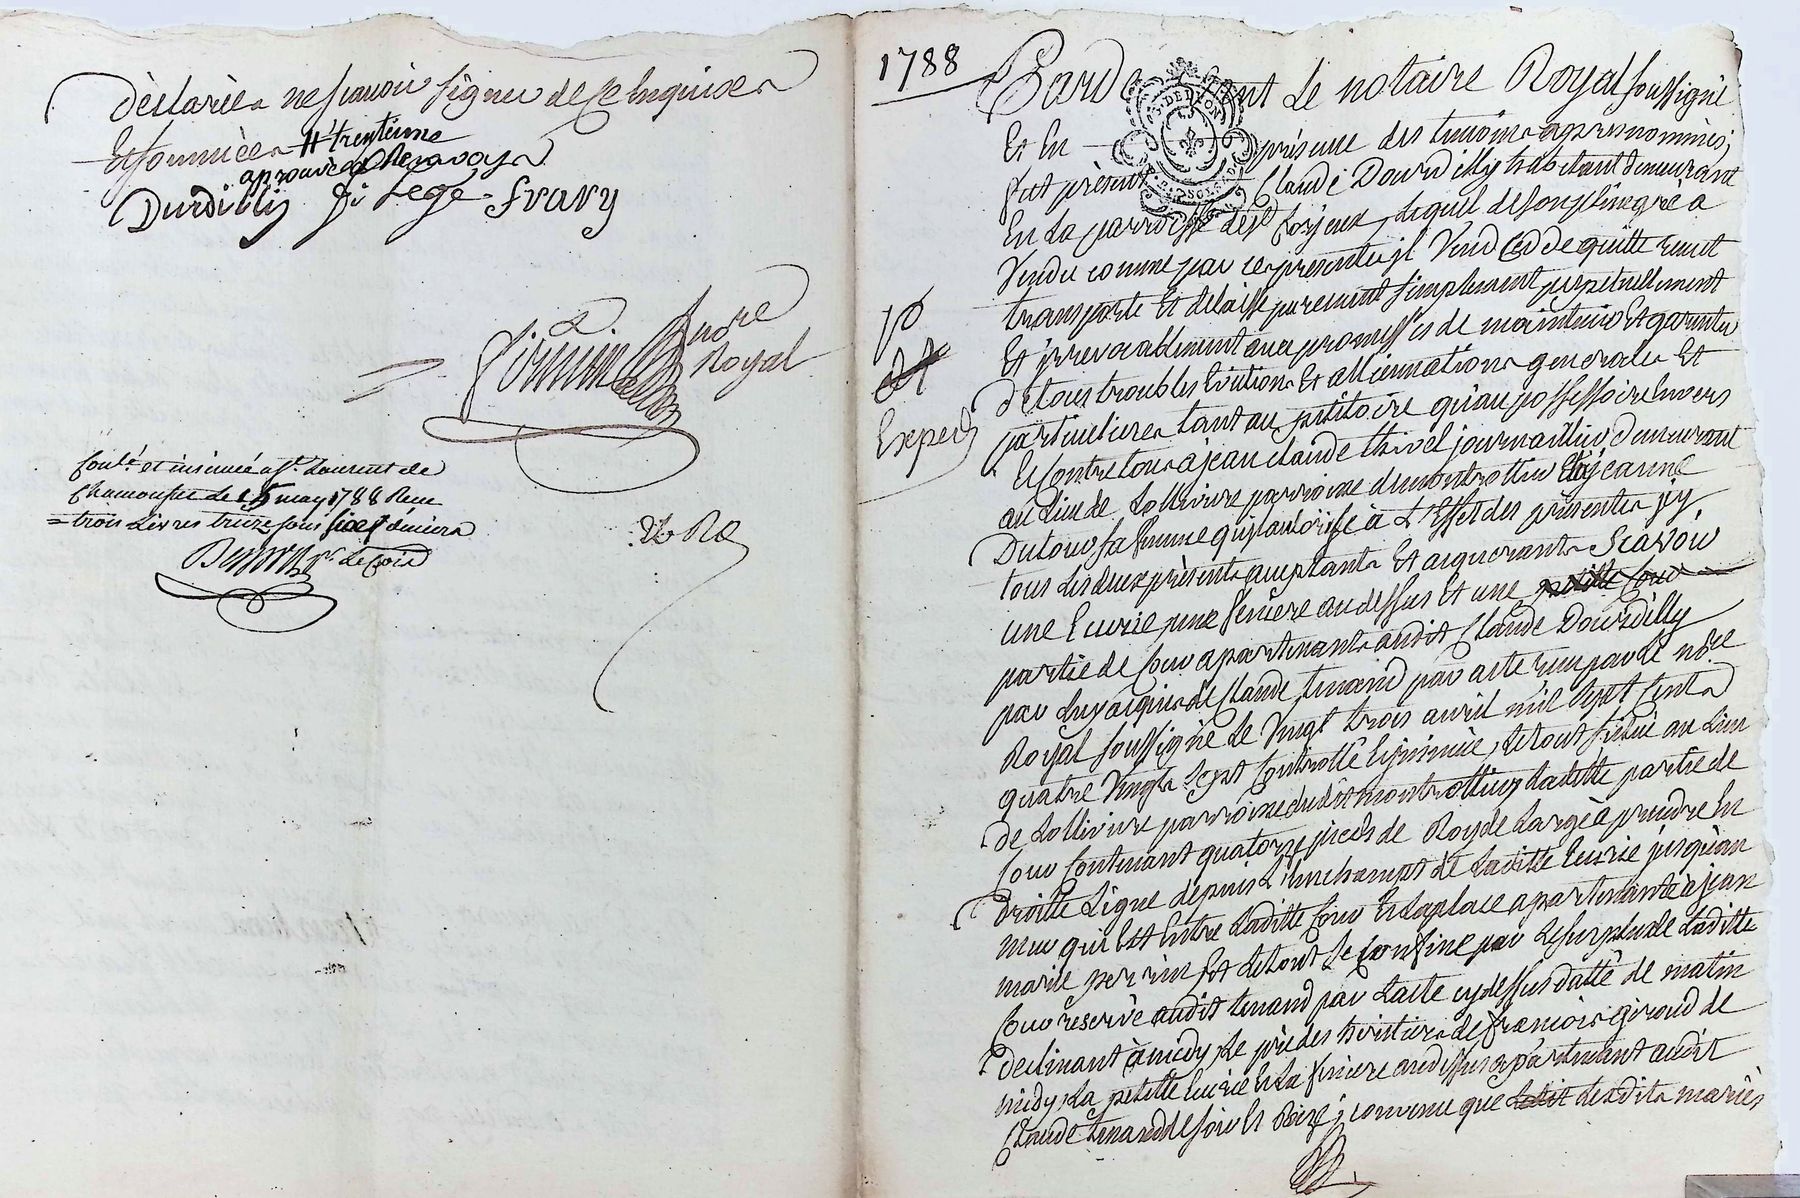 déclarées ne scavoir signer de ce enquises
et sommées # trentième
aprouvé
Durdilly Legé fravy
nore
Royal
Conlé et insinué a St Laurent de
Chamousset le 15 may 1788 Reçu
= trois Livres treize sous six deniers
1788
Pardevant Le notaire Royal soussigné
Et En présence des temoins apres nommés;
fut présent Claude Dourdilly habitant demeurant
En La parroisse de St forjeux, Lequel de son plin gré a
Vendu comme par ces presentes il Vend Cede quitte remet
transporte Et delaisse purement simplement perpetuellement
Et jrrevocablement avec promesses de maintenir Et garantir
de tous troubles Evictions Et alliennations generales Et
particulieres tant au petitoire qu'au possessoire Envers
Et Contre tous a jean claude thivel journaillier demeurant
au Lieu de Lolliviere parroisse de montrottier Et a jeanne
Dutour sa femme quil autorise à L'Effet des présentes jcy
tous Les deux présents acceptants Et aquerants Scavoir
une Ecurie une feniere au dessus Et une petite Cour
partie de Cour apartenants audit Claude Dourdilly
par Luy aquis de Claude Tenand par acte reçu par Le nore
Royal soussigné Le Vingt trois avril mil Sept Cents
quatre Vingt Sept Controllé Et jnsinué, Le tout situé au Lieu
de Lolliviere parroisse dudit montrottier, Ladille partie de
Cour Contenant quatorze pieds de Roy de Large à prendre En
droitte Ligne depuis de Laditte Ecurie jusqu'au
mur qui Est Entre Laditte Cour Et La place apartenante à jean
marie perrin Et Le tout Se Confine par Le Surplus de Laditte
Cour reservé audit tenand par Lacte cy dessus datté de matin
declinant à midy, Le pré des heritiers de françois giroud de
midy, La petitte Ecurie Et La feniere au dessus apartenant audit
Claude tenand de soir Et Bize; convenu que Ledit Lesdits mariés
vo
Exped